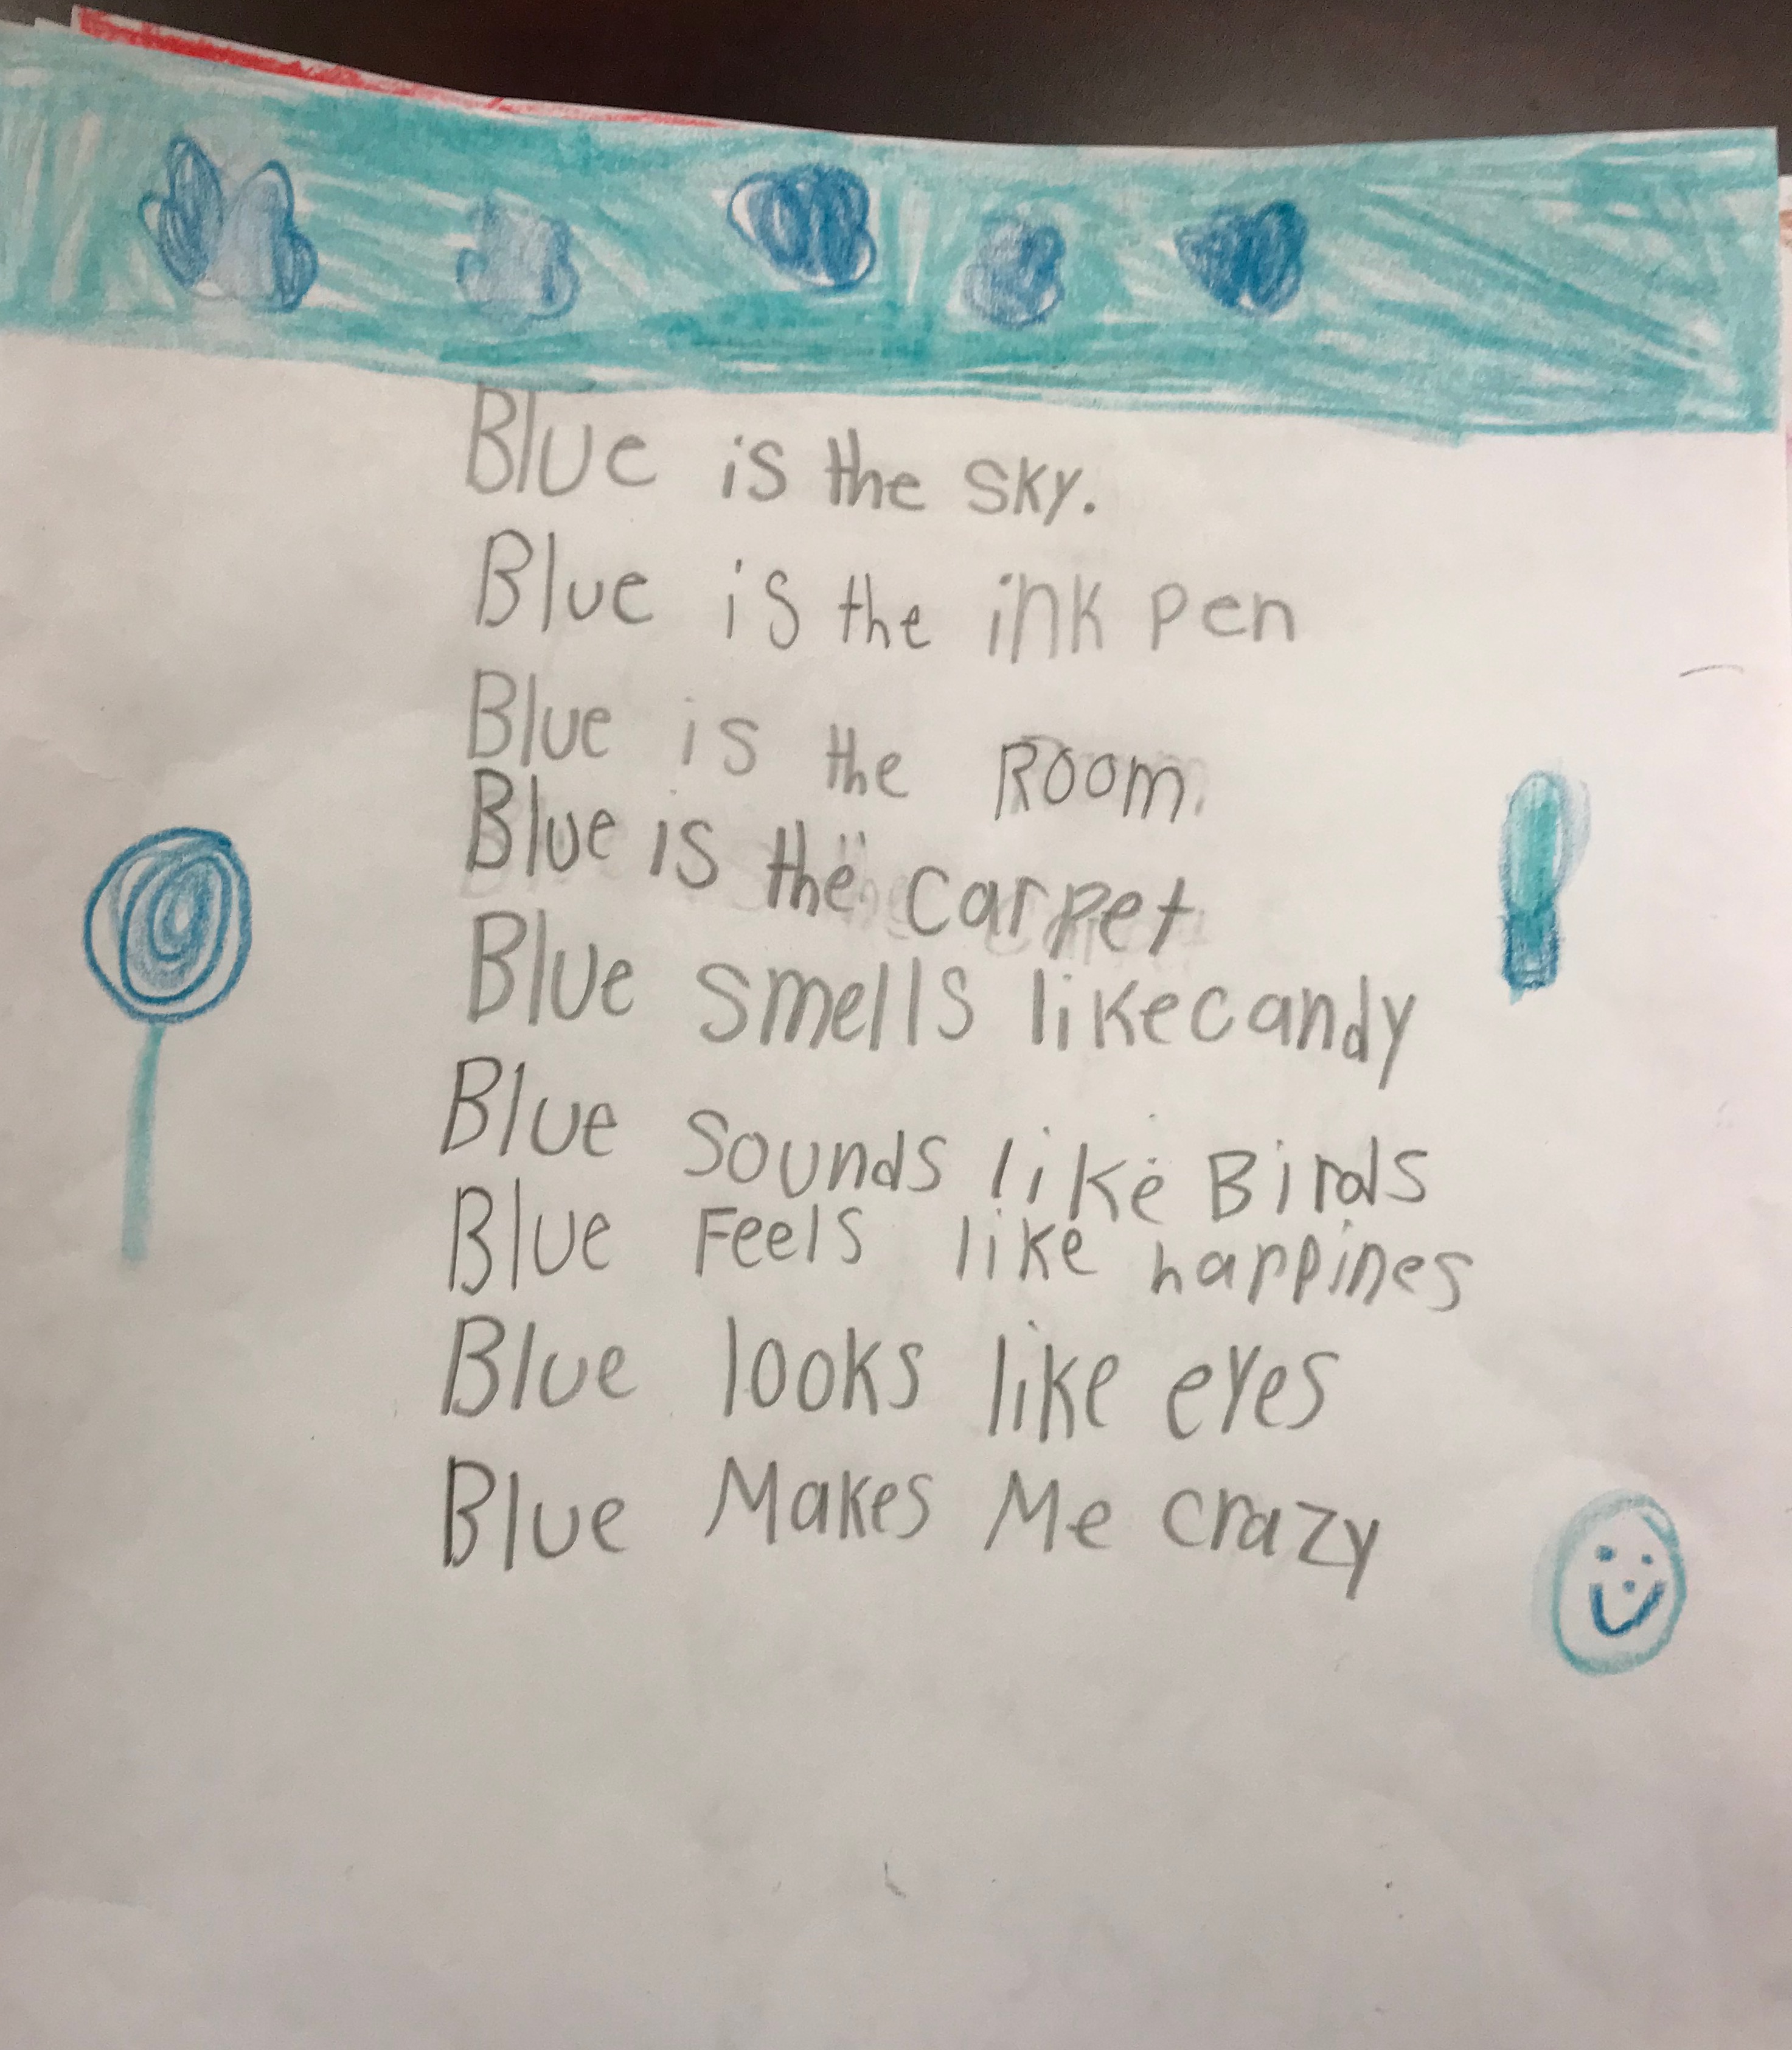 Blue is the sky.
Blue is the ink pen
Blue is the Room.
Blue is the carpet
Blue smells likecandy
Blue sounds like Birds
Blue Feels like happines
Blue looks like eyes
Blue Makes Me crazy